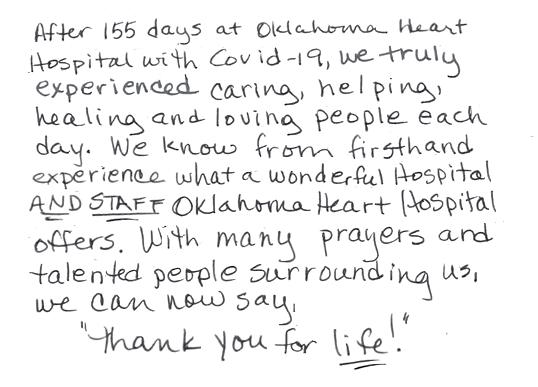 After 155 days at Oklahoma Heart
Hospital with Covid-19, we truly
experienced caring, helping,
healing and loving people each
day. We know from firsthand
experience what a wonderful Hospital
AND STAFF Oklahoma Heart Hospital
offers. With many prayers and
talented people surrounding us,
we can now say,
"Thank you for life!"